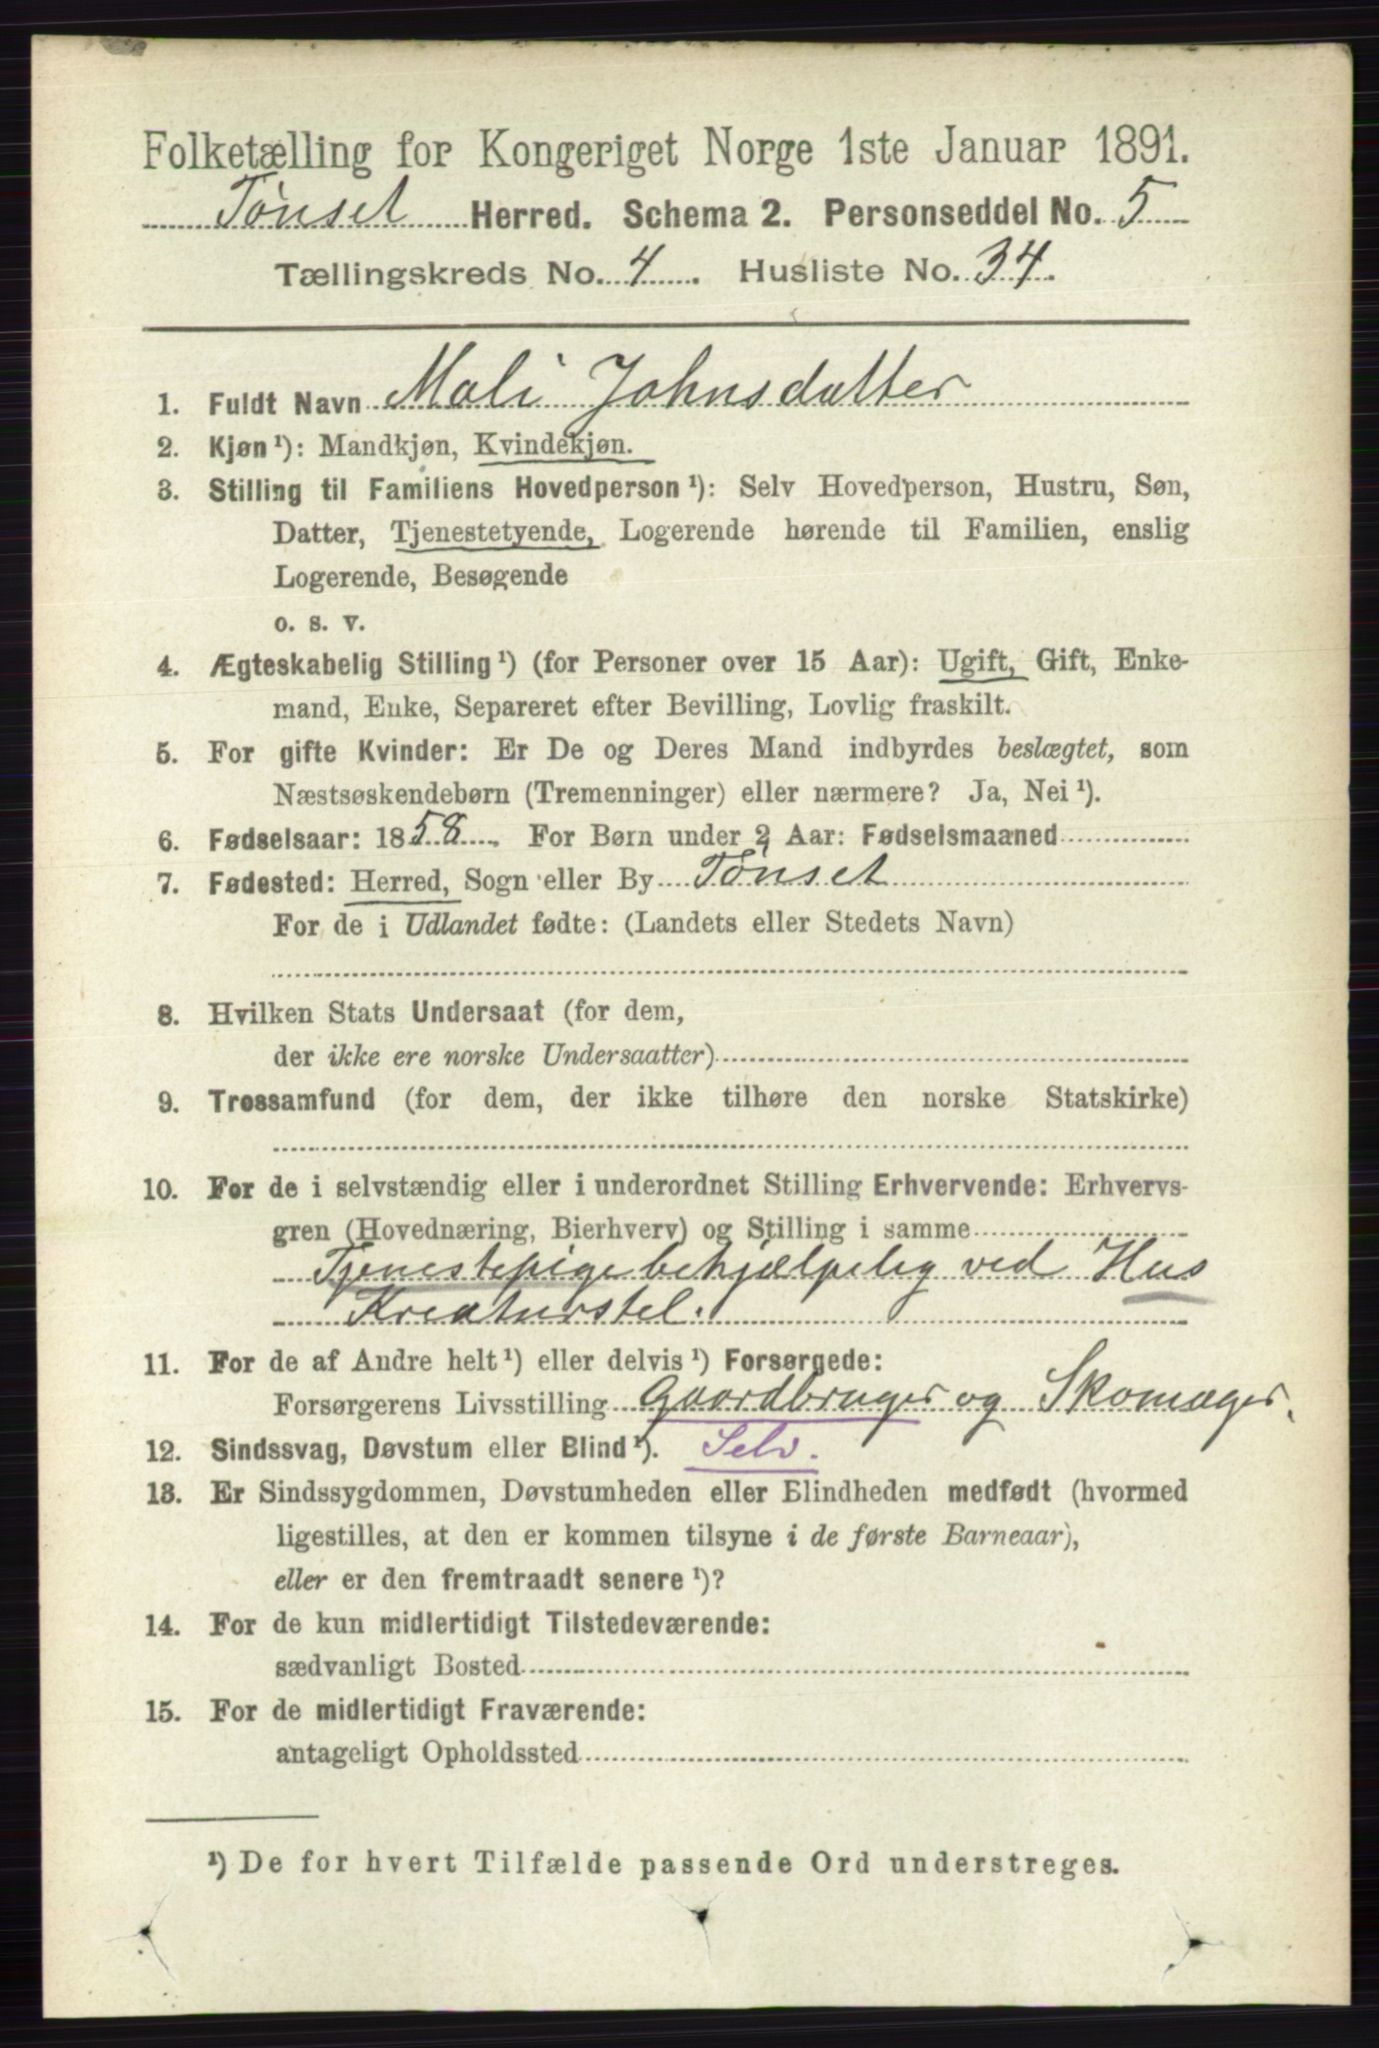 Folketælling for Kongeriget Norge 1ste Januar 1891.
Tønset Herred. Schema 2. Personseddel No. 5
Tællingskreds No. 4. Husliste No. 34.
1. Fuldt Navn Mali Johnsdatter
2. Kjøn¹): Mandkjøn, Kvindekjøn.
3. Stilling til Familiens Hovedperson¹): Selv Hovedperson, Hustru, Søn,
Datter, Tjenestetyende, Logerende hørende til Familien, enslig
Logerende, Besøgende
o. s. v.
4. Ægteskabelig Stilling¹) (for Personer over 15 Aar): Ugift, Gift, Enke-
mand, Enke, Separeret efter Bevilling, Lovlig fraskilt.
5. For gifte Kvinder: Er De og Deres Mand indbyrdes beslægtet, som
Næstsøskendebørn (Tremenninger) eller nærmere? Ja, Nei¹).
6. Fødselsaar: 1858. For Børn under 2 Aar: Fødselsmaaned
7. Fødested: Herred, Sogn eller By Tønset
For de i Udlandet fødte: (Landets eller Stedets Navn)
8. Hvilken Stats Undersaat (for dem,
der ikke ere norske Undersaatter)
9. Trossamfund (for dem, der ikke tilhøre den norske Statskirke)
10. For de i selvstændig eller i underordnet Stilling Erhvervende: Erhvervs-
gren (Hovednæring, Bierhverv) og Stilling i samme
Tjenestepige behjælpelig ved Hus
Kreaturstel.
11. For de af Andre helt¹) eller delvis¹) Forsørgede:
Forsørgerens Livsstilling Gaardbruger og Skomager.
12. Sindssvag, Døvstum eller Blind¹). Selv.
13. Er Sindssygdommen, Døvstumheden eller Blindheden medfødt (hvormed
ligestilles, at den er kommen tilsyne i de første Barneaar),
eller er den fremtraadt senere¹)?
14. For de kun midlertidigt Tilstedeværende:
sædvanligt Bosted
15. For de midlertidigt Fraværende:
antageligt Opholdssted
¹) De for hvert Tilfælde passende Ord understreges.